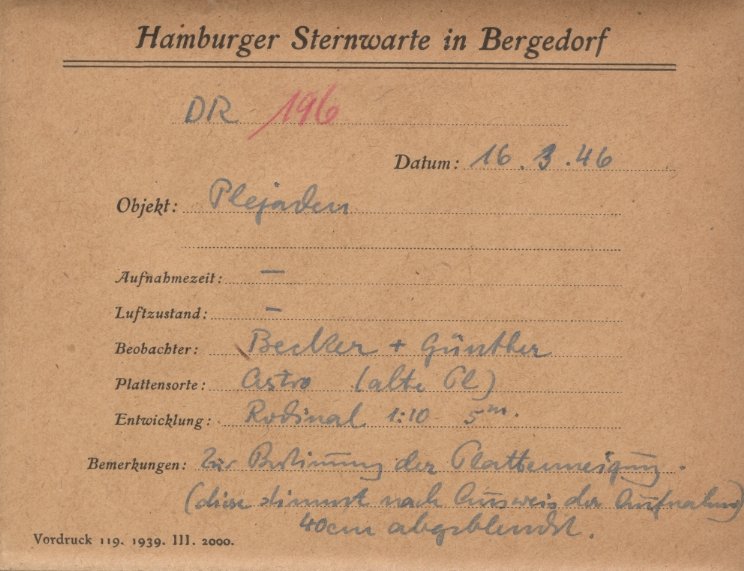 Hamburger Sternwarte in Bergedorf
DR 196
Datum: 16.3.46
Objekt: Plejaden
Aufnahmezeit: —
Luftzustand: —
Beobachter: Becker + Günther
Plattensorte: Astro (alte Pl)
Entwicklung: Rodinal 1:10 5m.
Bemerkungen: Zur Bestimmung der Plattenneigung.
(diese stimmt nach Ausweis der Aufnahme)
40cm abgeblendet.
Vordruck 119. 1939. III. 2000.